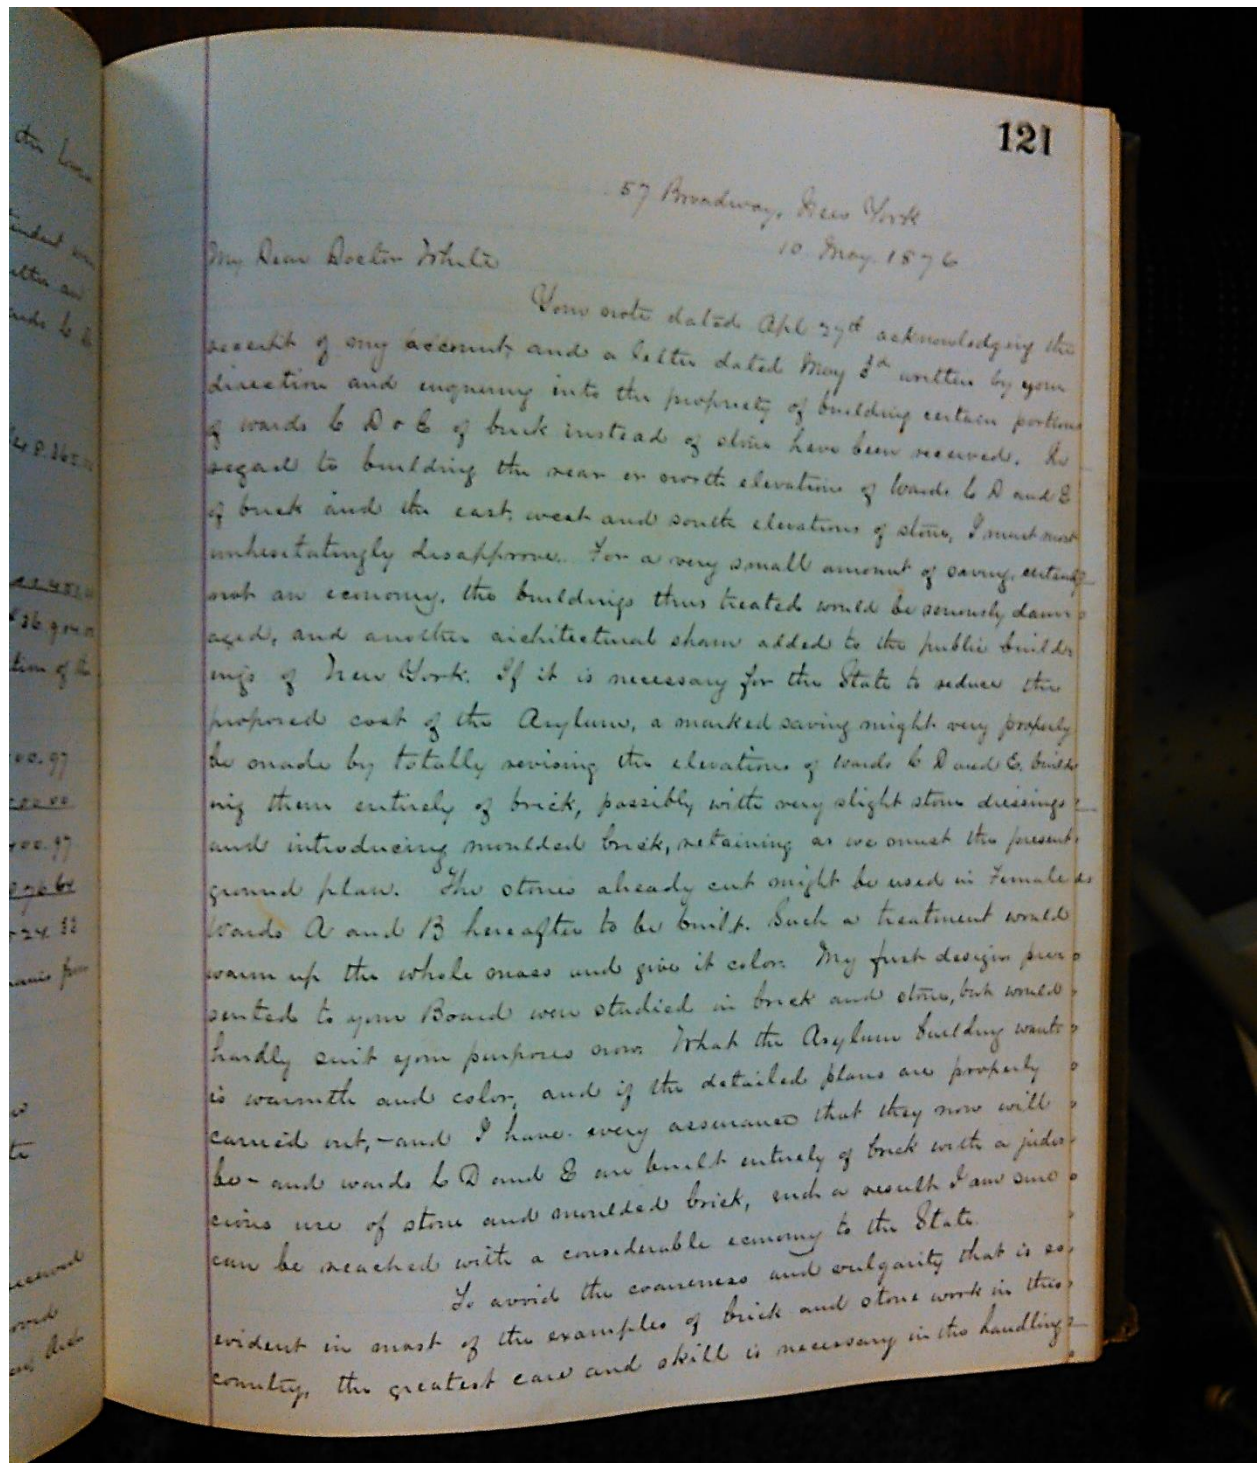 121
57 Broadway, New York
10 May. 1876
My Dear Doctor White
Your note dated Apl 27th acknowledging the
receipt of my account, and a letter dated May 3d written by your
direction and enquiring into the propriety of building certain portions
of wards C D & E of brick instead of stone have been received. In
regard to building the rear or north elevations of Wards C D and E
of brick and the east, west and south elevations of stone, I must most
unhesitatingly disapprove. For a very small amount of saving, certainly
not an economy, the buildings thus treated would be seriously dam-
aged, and another architectural sham added to the public build-
ings of New York. If it is necessary for the State to reduce the
proposed cost of the Asylum, a marked saving might very properly
be made by totally revising the elevations of wards C D and E, build-
ing them entirely of brick, possibly with very slight stone dressings
and introducing moulded brick, retaining as we must the present
ground plan. The stones already cut might be used in Female
Wards A and B hereafter to be built. Such a treatment would
warm up the whole mass and give it color. My first designs pre-
sented to your Board were studied in brick and stone, but would
hardly suit your purposes now. What the Asylum building wants
is warmth and color, and if the detailed plans are properly
carried out, - and I have every assurance that they now will
be - and wards C D and E are built entirely of brick with a judi-
cious use of stone and moulded brick, such a result I am sure
can be reached with a considerable economy to the State.
To avoid the coarseness and vulgarity that is so
evident in most of the examples of brick and stone work in this
country, the greatest care and skill is necessary in the handling